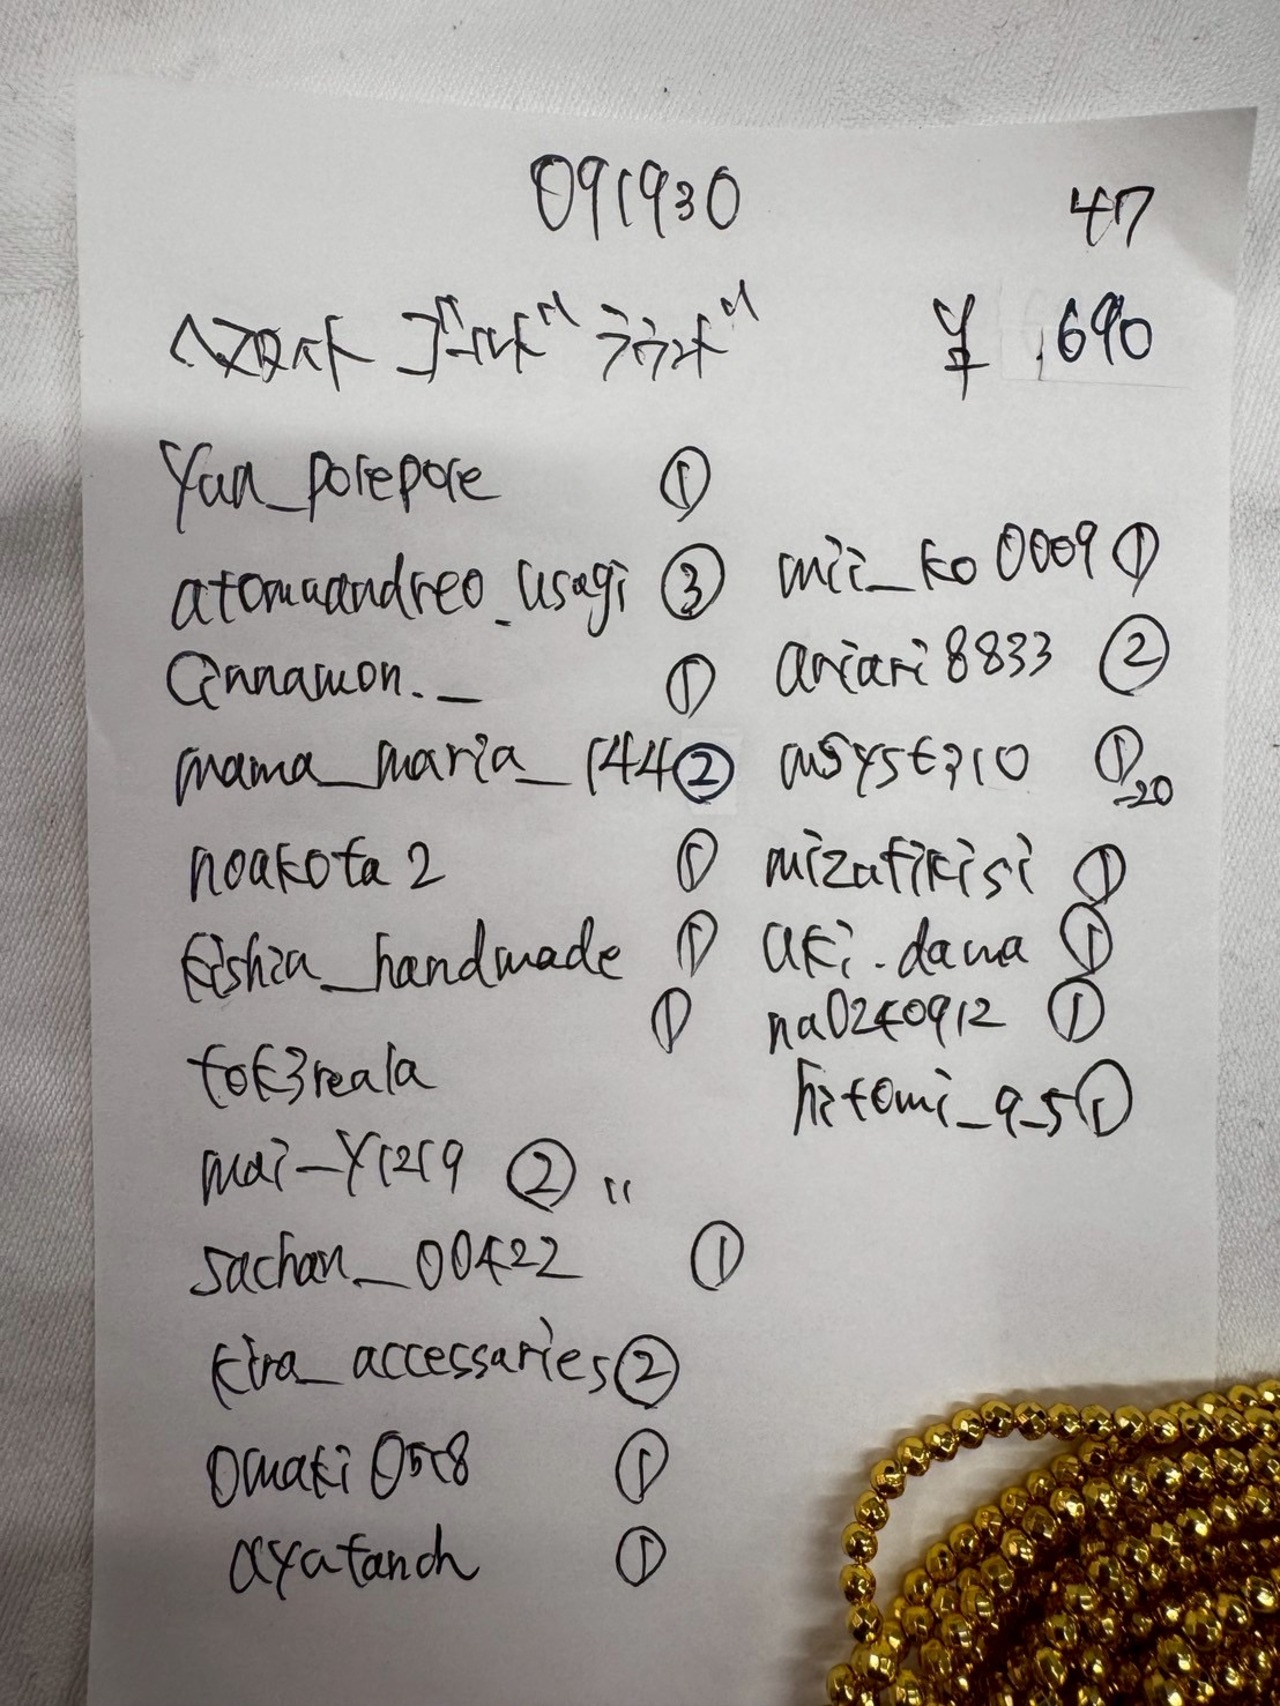 091930
47
ヘマタイト ゴールド ラウンド
¥ 690
Yun_porepore ①
atomuandreo_usagi ③
Cinnamon._ ①
mama_maria_144 ②
noakota2 ①
kishia_handmade ①
tok3reala ①
mai-y1219 ② 11
sachan_00422 ①
kira_accessaries ②
omaki0518 ①
ayatanch ①
mii_ko0009 ①
ariari8833 ②
①-20
mizafikisi ①
aki.dana ①
na0240912 ①
hitomi_9_5 ①